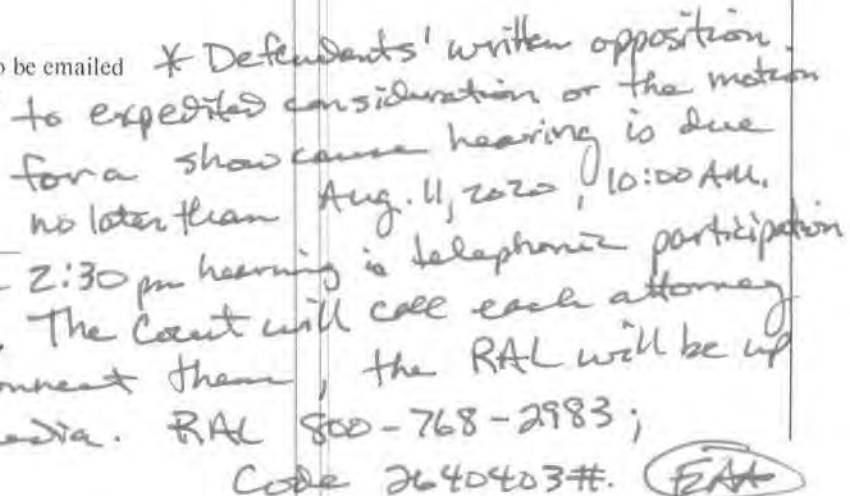 o be emailed * Defendants' written opposition
to expedited consideration or the motion
for a show cause hearing is due
no later than Aug. 11, 2020, 10:00 A.M.
2:30 pm hearing is telephonic participation
. The Court will call each attorney
onnect them, the RAL will be up
edia. RAL 800-768-2983;
Code 2640403#.